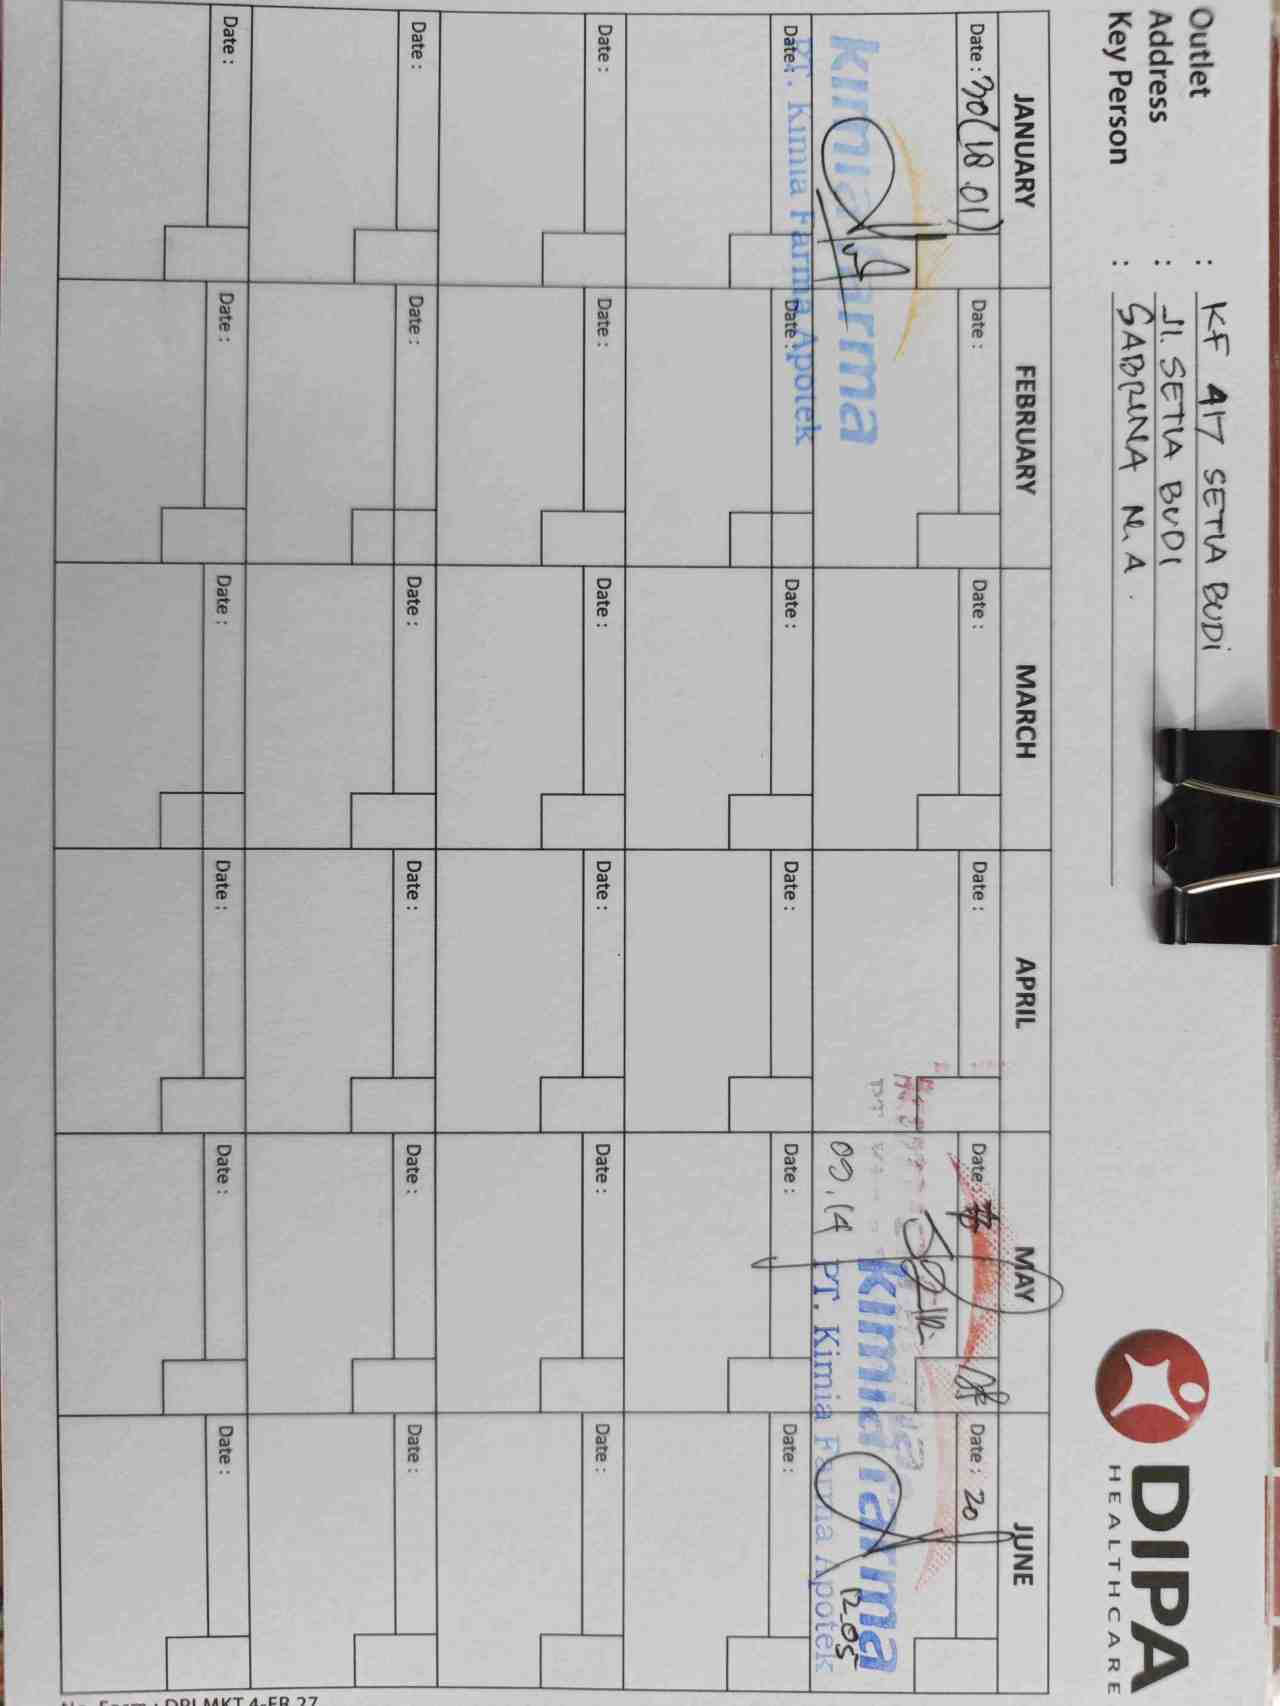 Outlet : KF 417 SETIA BUDI
Address : Jl. SETIA BUDI
Key Person : SABRINA N. A.
DIPA
HEALTHCARE
JANUARY FEBRUARY MARCH APRIL MAY JUNE
Date : 30 (18.01) Date : Date : Date : Date : Date : 20
kimia farma
09.14 kimia farma 12.05
PT. Kimia Farma Apotek
PT. Kimia Farma Apotek
Date : Date : Date : Date : Date : Date :
Date : Date : Date : Date : Date : Date :
Date : Date : Date : Date : Date : Date :
Date : Date : Date : Date : Date : Date :
No. Form : DPI.MKT.4-FR.27